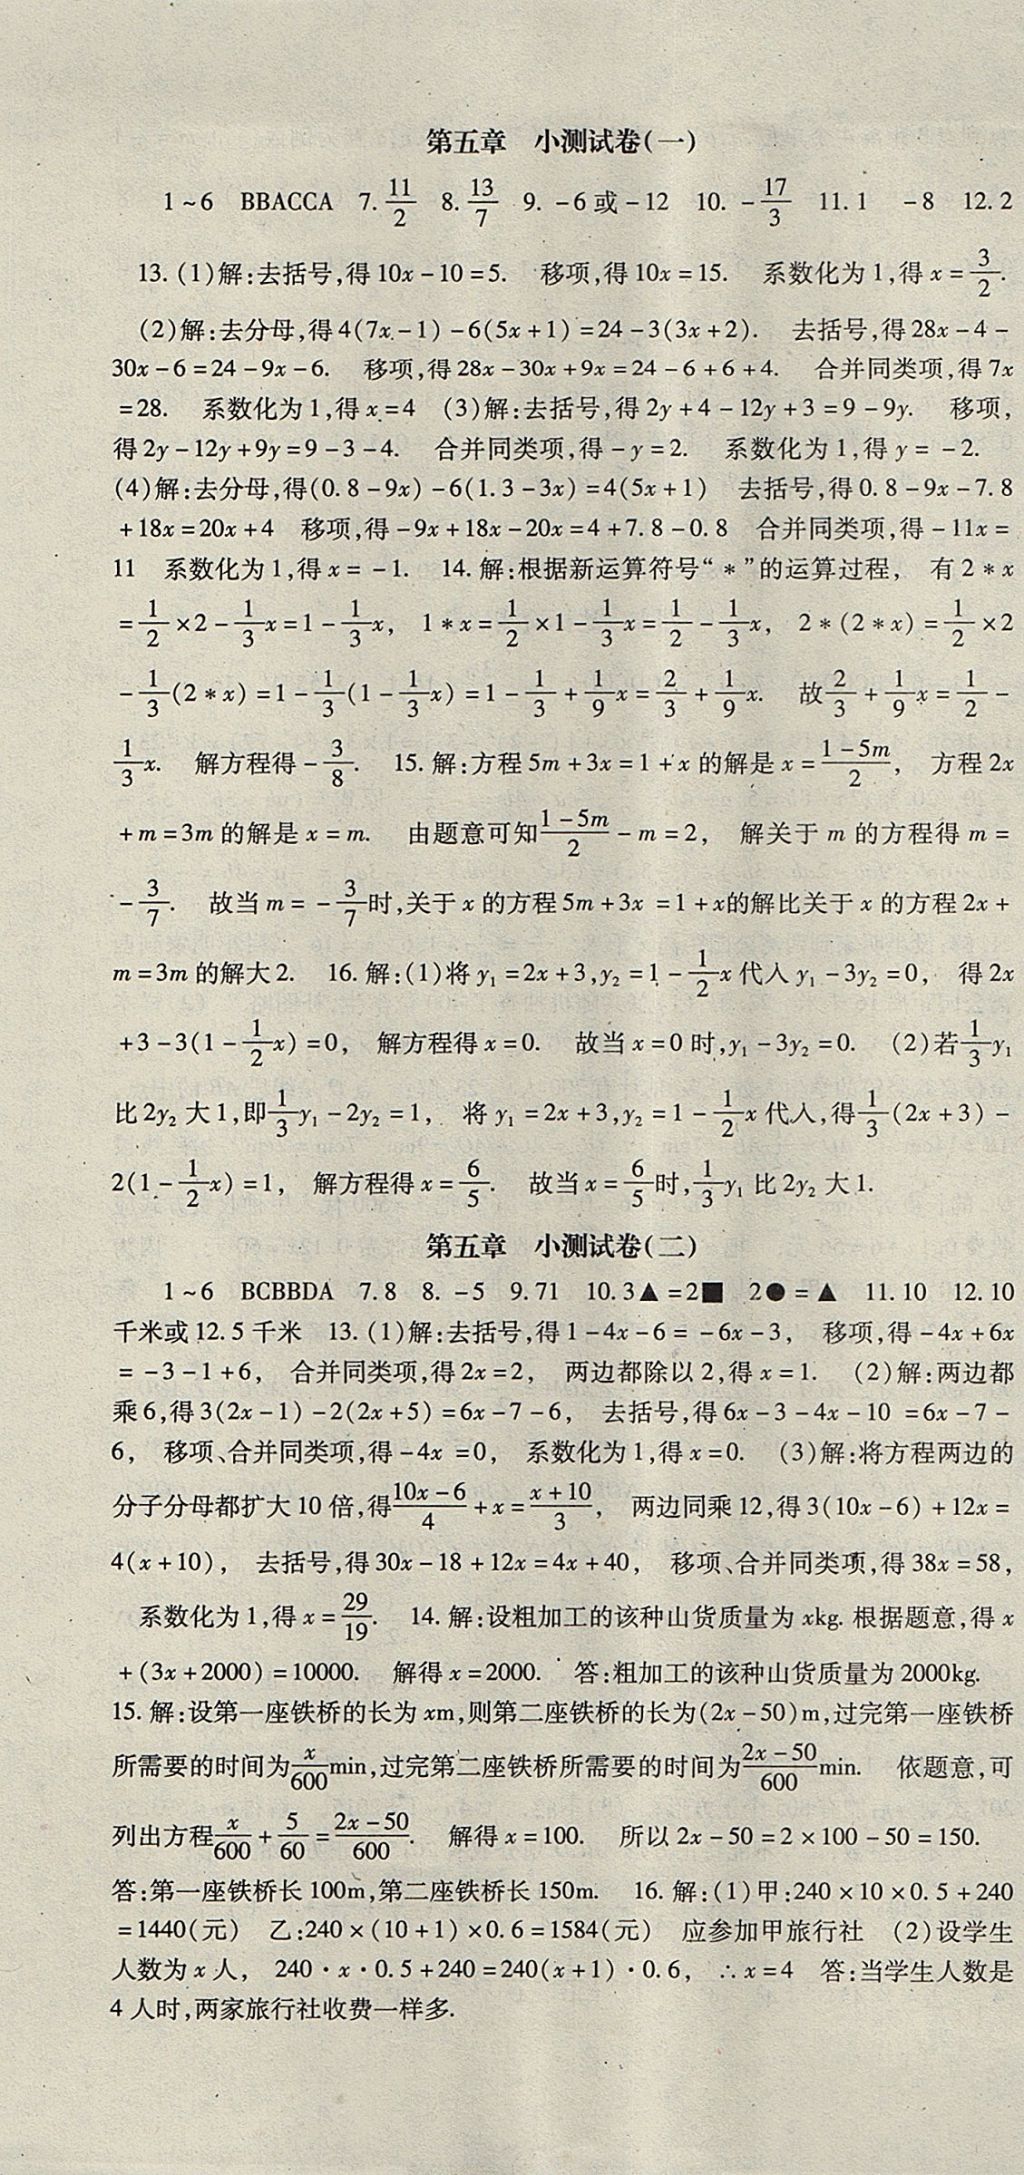 第五章　小测试卷(一)
1~6　BBACCA　7. 11/2　8. 13/7　9. -6或-12　10. -17/3　11. 1　-8　12. 2
13. (1)解:去括号,得10x-10=5.　移项,得10x=15.　系数化为1,得x=3/2.
(2)解:去分母,得4(7x-1)-6(5x+1)=24-3(3x+2).　去括号,得28x-4-
30x-6=24-9x-6.　移项,得28x-30x+9x=24-6+6+4.　合并同类项,得7x
=28.　系数化为1,得x=4　(3)解:去括号,得2y+4-12y+3=9-9y.　移项,
得2y-12y+9y=9-3-4.　合并同类项,得-y=2.　系数化为1,得y=-2.
(4)解:去分母,得(0.8-9x)-6(1.3-3x)=4(5x+1)　去括号,得0.8-9x-7.8
+18x=20x+4　移项,得-9x+18x-20x=4+7.8-0.8　合并同类项,得-11x=
11　系数化为1,得x=-1.　14. 解:根据新运算符号“*”的运算过程,　有2*x
=1/2×2-1/3x=1-1/3x,　1*x=1/2×1-1/3x=1/2-1/3x,　2*(2*x)=1/2×2
-1/3(2*x)=1-1/3(1-1/3x)=1-1/3+1/9x=2/3+1/9x.　故2/3+1/9x=1/2-
1/3x.　解方程得-3/8.　15. 解:方程5m+3x=1+x的解是x=(1-5m)/2,　方程2x
+m=3m的解是x=m.　由题意可知(1-5m)/2-m=2,　解关于m的方程得m=
-3/7.　故当m=-3/7时,关于x的方程5m+3x=1+x的解比关于x的方程2x+
m=3m的解大2.　16. 解:(1)将y₁=2x+3,y₂=1-1/2x代入y₁-3y₂=0,　得2x
+3-3(1-1/2x)=0,　解方程得x=0.　故当x=0时,y₁-3y₂=0.　(2)若1/3y₁
比2y₂大1,即1/3y₁-2y₂=1,　将y₁=2x+3,y₂=1-1/2x代入,得1/3(2x+3)-
2(1-1/2x)=1,　解方程得x=6/5.　故当x=6/5时,1/3y₁比2y₂大1.
第五章　小测试卷(二)
1~6　BCBBDA　7. 8　8. -5　9. 71　10. 3▲=2■　2●=▲　11. 10　12. 10
千米或12.5千米　13. (1)解:去括号,得1-4x-6=-6x-3,　移项,得-4x+6x
=-3-1+6,　合并同类项,得2x=2,　两边都除以2,得x=1.　(2)解:两边都
乘6,得3(2x-1)-2(2x+5)=6x-7-6,　去括号,得6x-3-4x-10=6x-7-
6,　移项、合并同类项,得-4x=0,　系数化为1,得x=0.　(3)解:将方程两边的
分子分母都扩大10倍,得(10x-6)/4+x=(x+10)/3,　两边同乘12,得3(10x-6)+12x=
4(x+10),　去括号,得30x-18+12x=4x+40,　移项、合并同类项,得38x=58,
系数化为1,得x=29/19.　14. 解:设粗加工的该种山货质量为xkg. 根据题意,得x
+(3x+2000)=10000.　解得x=2000.　答:粗加工的该种山货质量为2000kg.
15. 解:设第一座铁桥的长为xm,则第二座铁桥的长为(2x-50)m,过完第一座铁桥
所需要的时间为x/600min,过完第二座铁桥所需要的时间为(2x-50)/600min.　依题意,可
列出方程x/600+5/60=(2x-50)/600.　解得x=100.　所以2x-50=2×100-50=150.
答:第一座铁桥长100m,第二座铁桥长150m.　16. 解:(1)甲:240×10×0.5+240
=1440(元)　乙:240×(10+1)×0.6=1584(元)　应参加甲旅行社　(2)设学生
人数为x人,　240·x·0.5+240=240(x+1)·0.6,　∴x=4　答:当学生人数是
4人时,两家旅行社收费一样多.